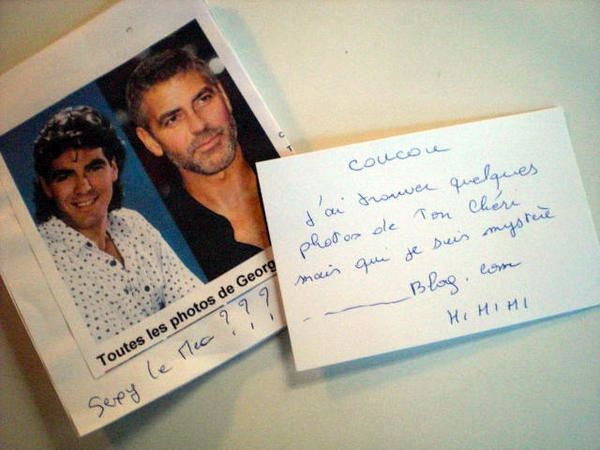 Toutes les photos de Georg
Sexy le Mec ???
coucou
J'ai trouver quelques
photos de Ton Chéri
mais qui je suis mystère
. _______ Blog.com
HI HI HI